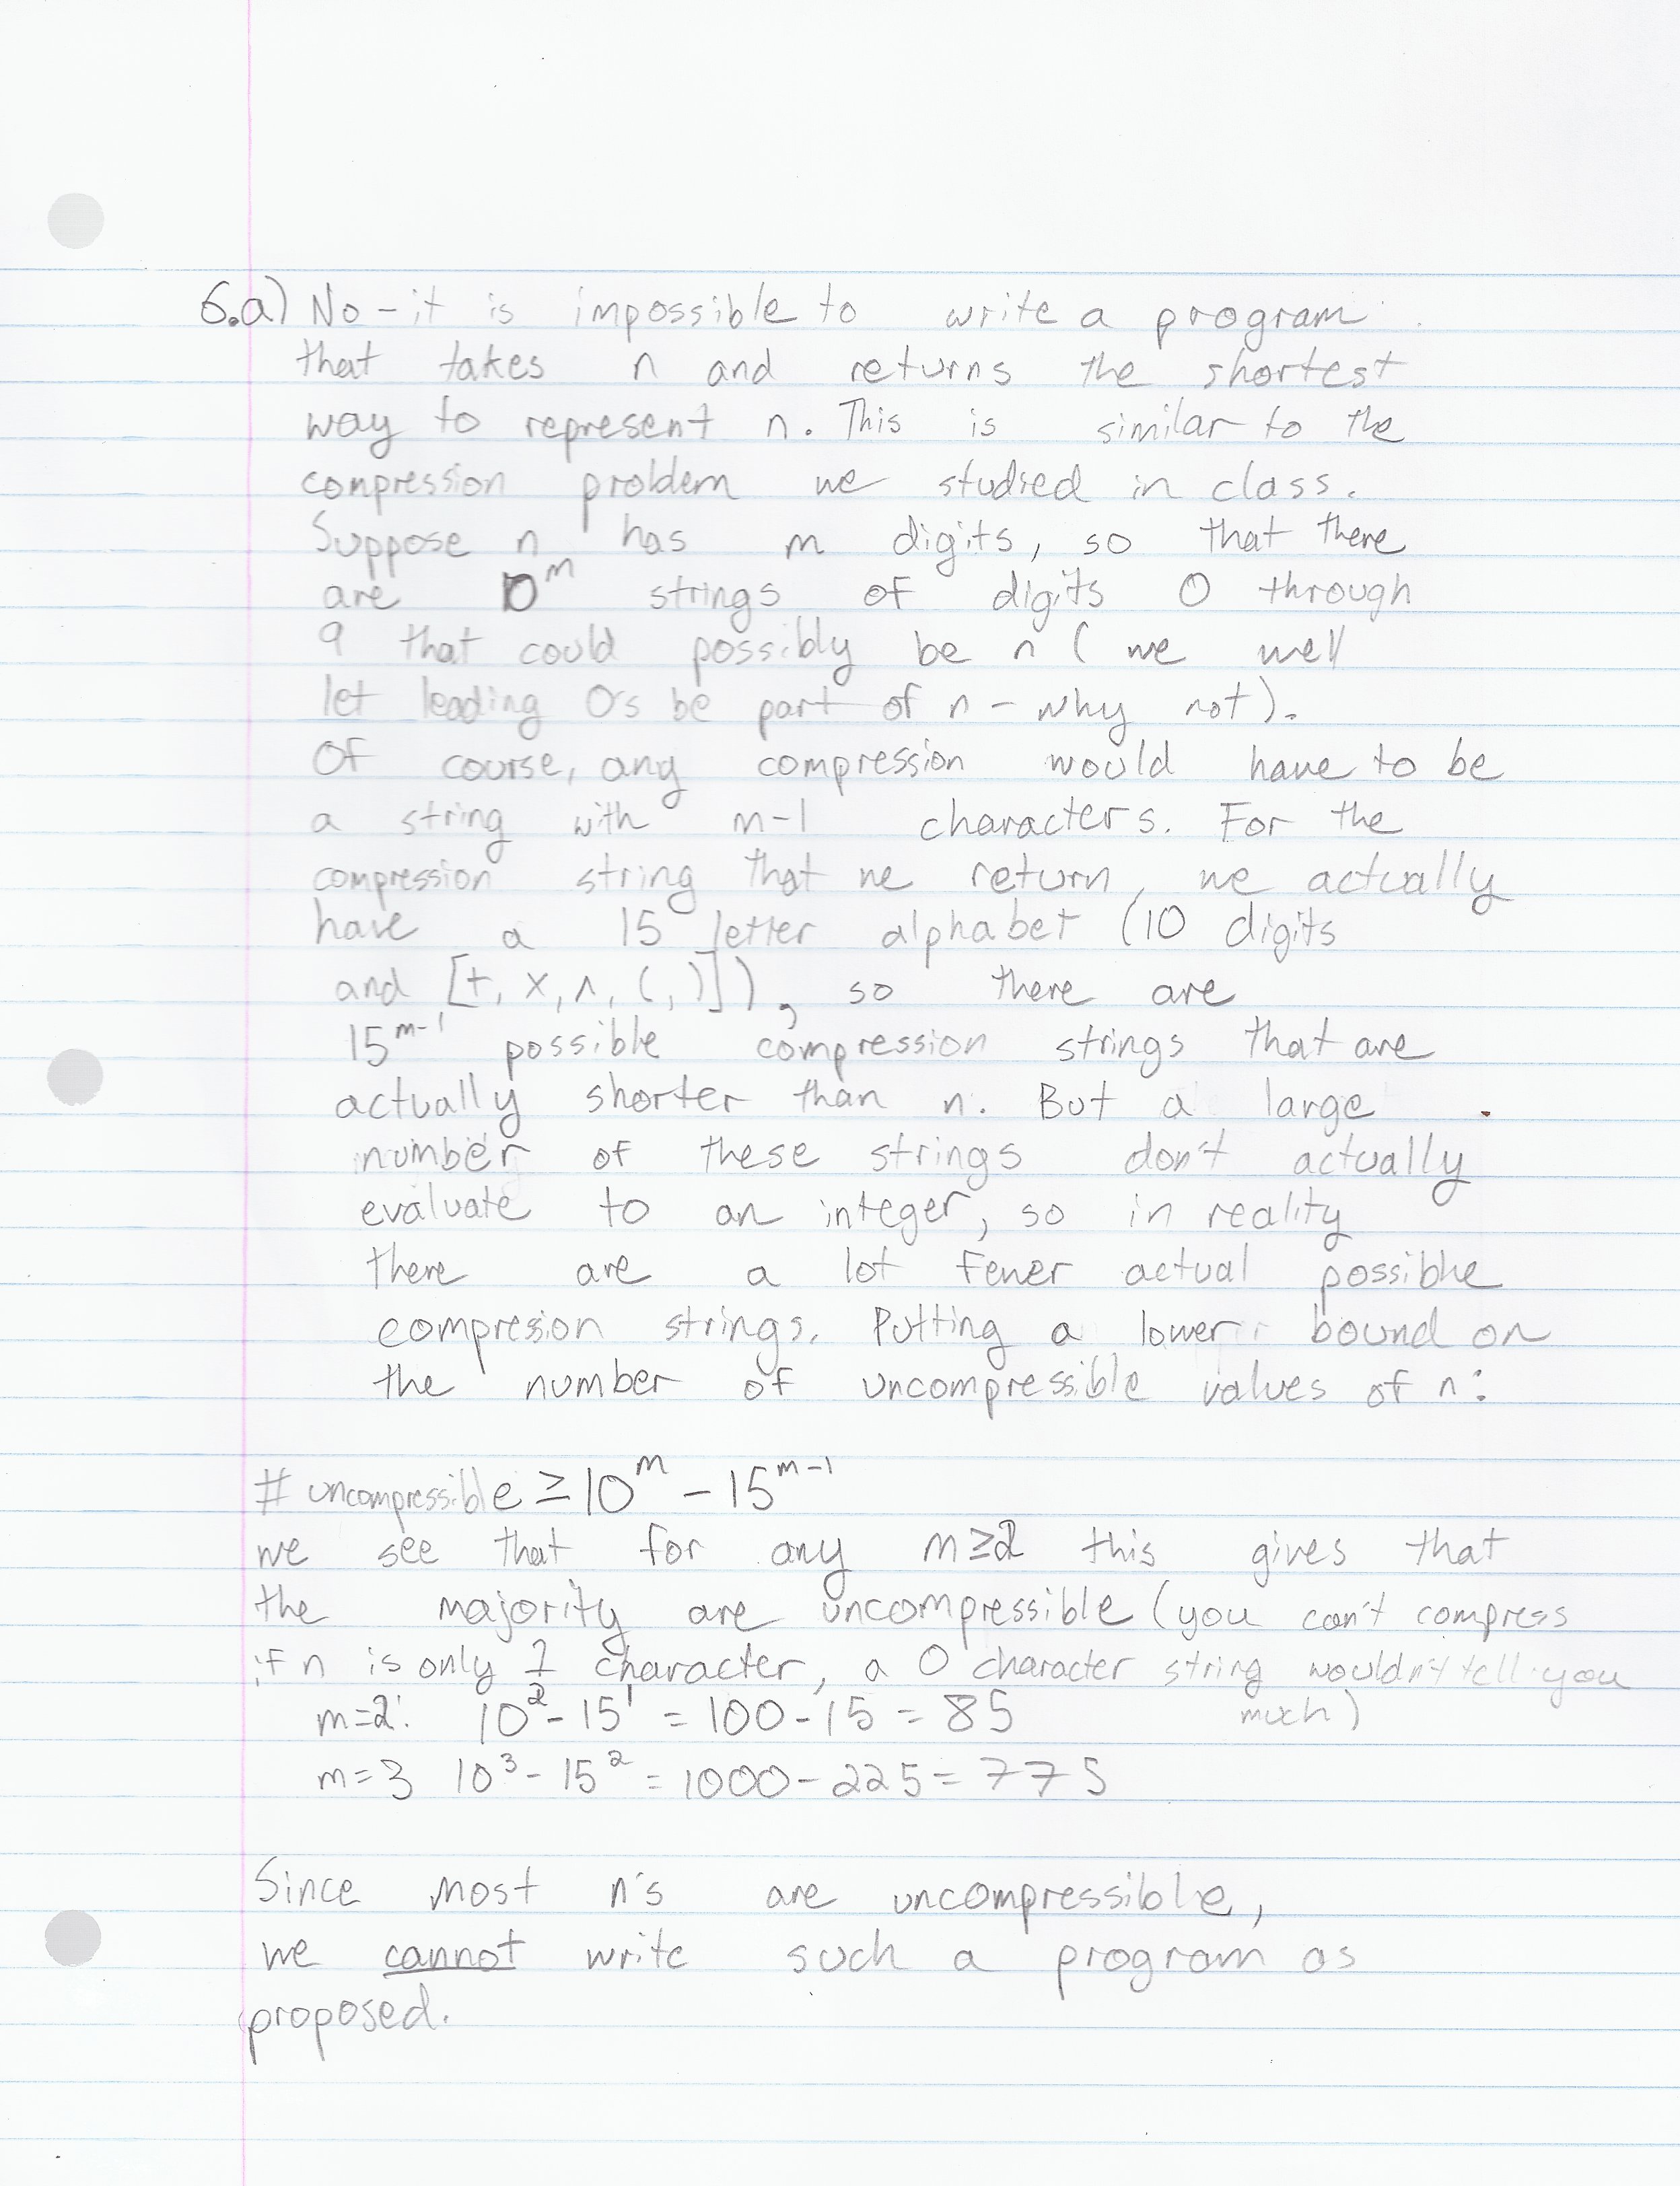 6.a) No - it is impossible to write a program
that takes n and returns the shortest
way to represent n. This is similar to the
compression problem we studied in class.
Suppose n has m digits, so that there
are 10^m strings of digits 0 through
9 that could possibly be n (we well
let leading 0's be part of n - why not).
Of course, any compression would have to be
a string with m-1 characters. For the
compression string that we return, we actually
have a 15 letter alphabet (10 digits
and [+, x, ^, (, )]), so there are
15^(m-1) possible compression strings that are
actually shorter than n. But a large
number of these strings don't actually
evaluate to an integer, so in reality
there are a lot fewer actual possible
compresion strings. Putting a lower bound on
the number of uncompressible values of n:
# uncompressible ≥ 10^m - 15^(m-1)
we see that for any m≥2 this gives that
the majority are uncompressible (you can't compress
if n is only 1 character, a 0 character string wouldn't tell you
much)
m=2: 10^2 - 15^1 = 100 - 15 = 85
m=3 10^3 - 15^2 = 1000 - 225 = 775
Since most n's are uncompressible,
we cannot write such a program as
proposed.